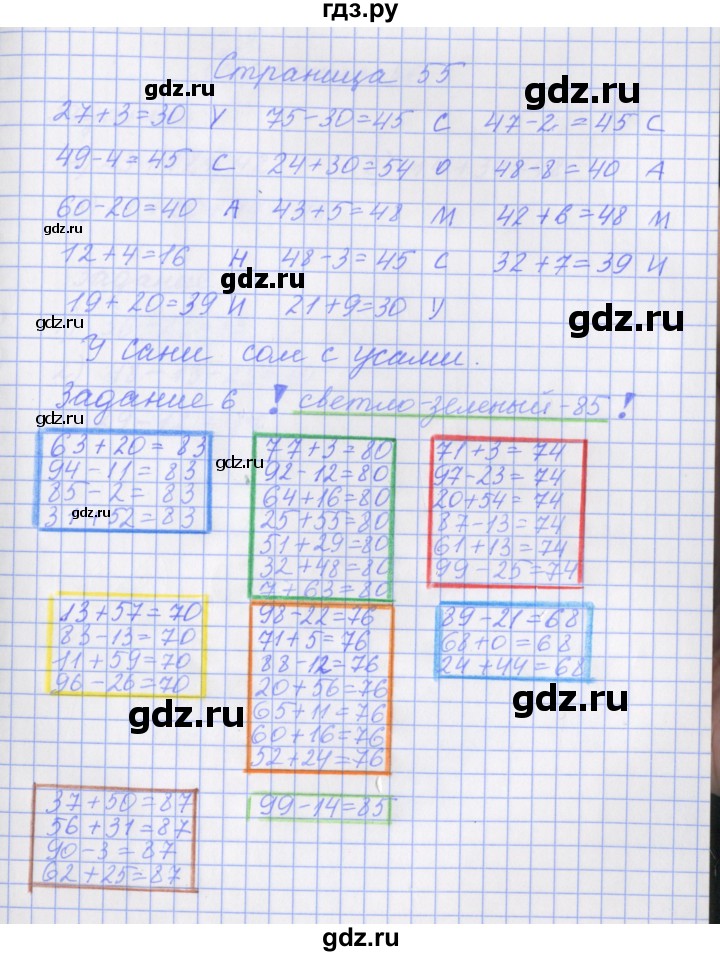 гдз.ру
Страница 55
gdz.ru
gdz.ru
27+3=30 У 75-30=45 С 47-2=45 С
gdz.ru
49-4=45 С 24+30=54 О 48-8=40 А
60-20=40 А 43+5=48 М 42+6=48 М
gdz.ru
12+4=16 Н 48-3=45 С 32+7=39 И
gdz.ru
19+20=39 И 21+9=30 У
gdz.ru
gdz.ru
У Сани сом с усами.
Задание 6 ! светло-зеленый-85 !
gdz.ru
63+20=83
94-11=83
85-2=83
31+52=83
gdz.ru
77+3=80
92-12=80
64+16=80
25+55=80
51+29=80
32+48=80
7+63=80
gdz.ru
71+3=74
97-23=74
20+54=74
87-13=74
61+13=74
99-25=74
gdz.ru
13+57=70
83-13=70
11+59=70
96-26=70
98-22=76
71+5=76
88-12=76
20+56=76
65+11=76
60+16=76
52+24=76
89-21=68
68+0=68
24+44=68
gdz.ru
gdz.ru
37+50=87
56+31=87
90-3=87
62+25=87
99-14=85
gdz.ru
gdz.ru
gdz.ru